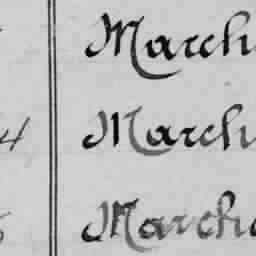 March
4 March
March